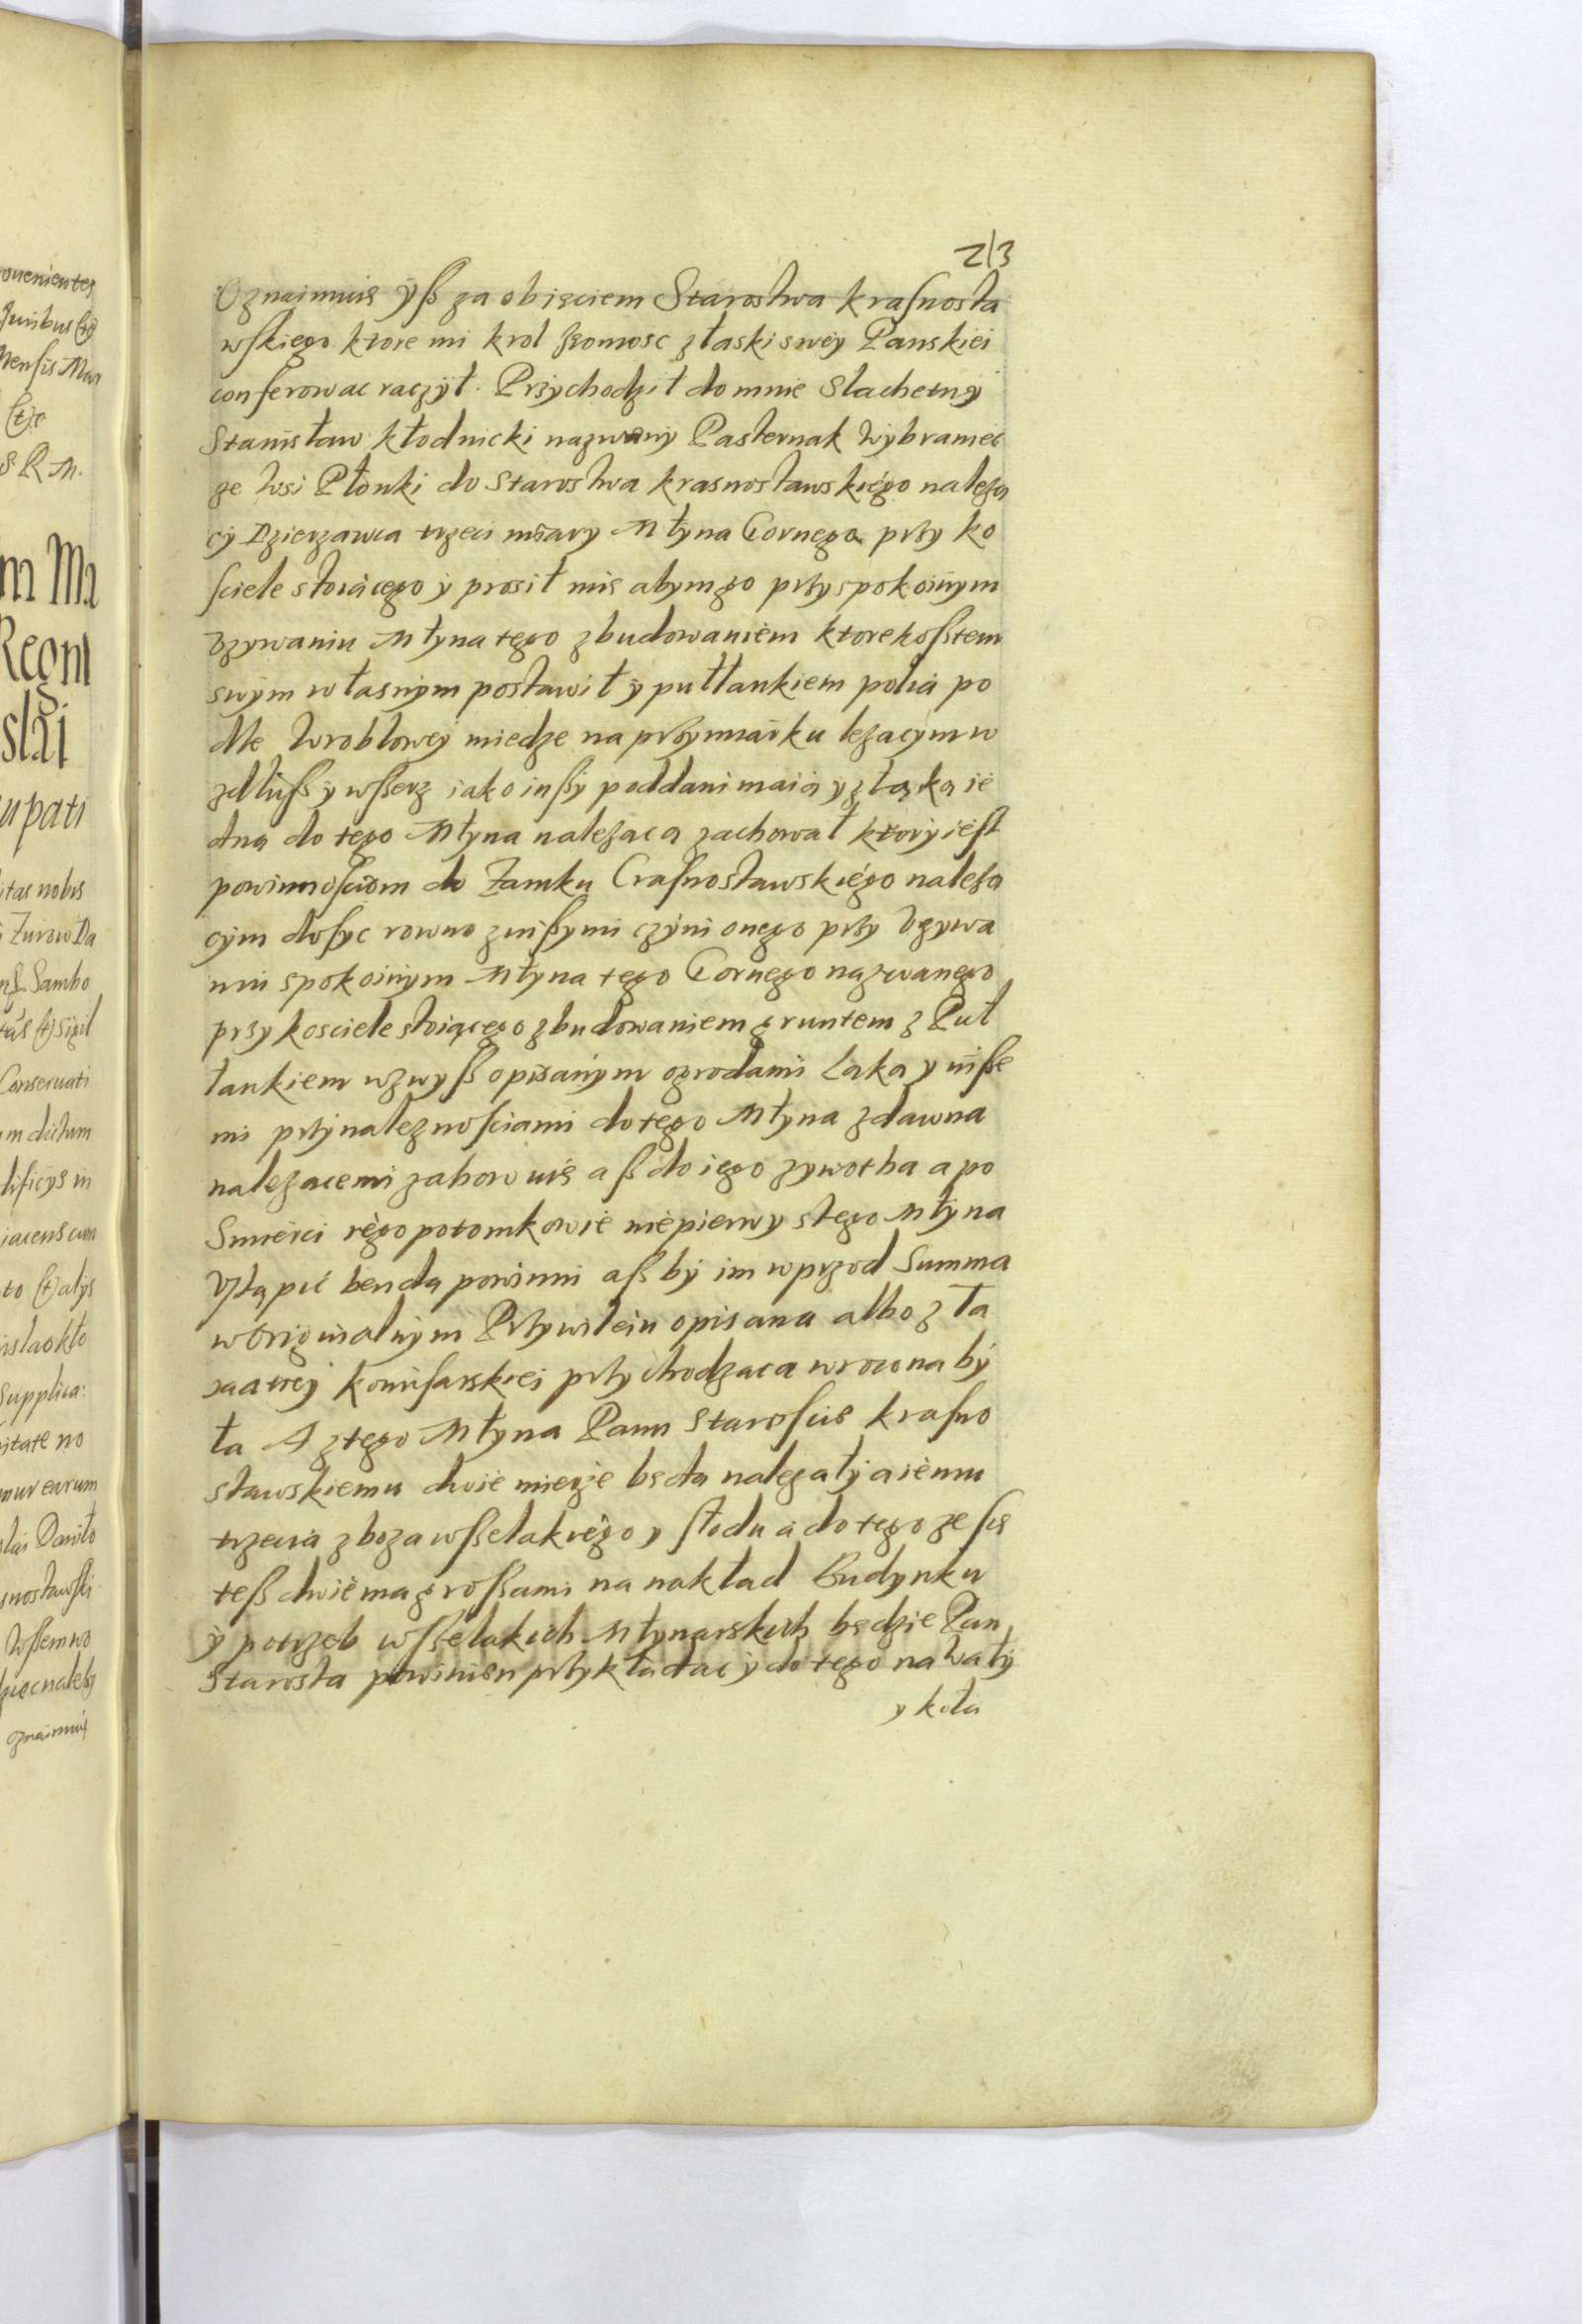 213
Oznaimuię yß za obięciem Starostwa krasnosta
wskiego ktore mi krol Jegomosc z łaski swey Panskiei
conferowac raczył. Przychodził do mnie Slachetny
Stanisław kłodnicki nazwany Pasternak Wybraniec
ze wsi Płonki do Starostwa krasnostawskiego należą
cy Dzierzawca trzeci miary Młyna Gornego przy ko
sciele stoiącego y prosił mię abym go przy spokoinym
vzywaniu Młyna tego z budowaniem ktore kosztem
swym własnym postawił y pułłankiem polia po
dle Wroblowey miedze na przymiarku lezacym w
zdłuß y wßerz iako inßy poddani maią y z łąką ie
dną do tego Młyna nalezaca zachował ktory iest
powinnosciom do Zamku Crasnostawskiego należa
cym dosyc rowno z inßymi czyni onego przy vzywa
niu spokoinym Młyna tego Gornego nazwanego
przy kosciele stoiącego z budowaniem gruntem z Puł
łankiem wzwyß opisanym ogrodami Laka y inße
mi przynaleznosciami do tego Młyna zdawna
nalezacemi zahowuię aß do iego zywotha a po
Smierci iego potomkowie nie pierwy s tego Młyna
Vstąpic benda powinni aß by im wprzod Summa
w originalnym Przywileiu opisana albo z ta
xaatiey komisarskiei przychodzaca wrocona by
ła A z tego Młyna Panu Staroscie krasno
stawskiemu dwie mierze będa nalezały a iemu
trzecia z boza wßelakiego y słodu a do tego ze się
teß dwiema großami na nakład Budynku
y potrzeb wßelakich Młynarskich będzie Pan
Starosta powinien przykładac y do tego na wały
y koła
ouenientes
Juribus
Mensis Mar
S R M.
m Ma
Regni
upati
itas nobis
Zurow Da
Sambo
sigil
Conseruati
m dictum
dificijs in
iacens cum
to (et) alys
islao kło
Supplica:
itate no
mur earum
lai Daniło
snostawski
Wssem wo
oznaimuię